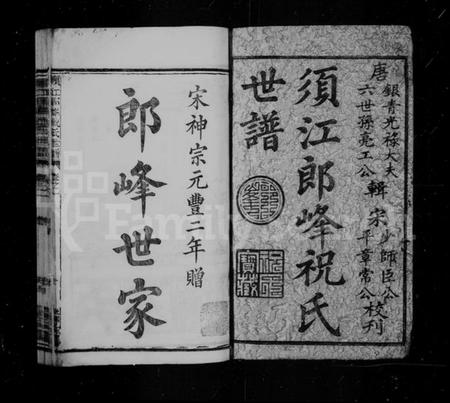 唐銀青光祿大夫
六世孫亮工公輯
宋少師臣公
平章常公校刊
須江郎峰祝氏
世譜
宋神宗元豐二年贈
郎峰世家